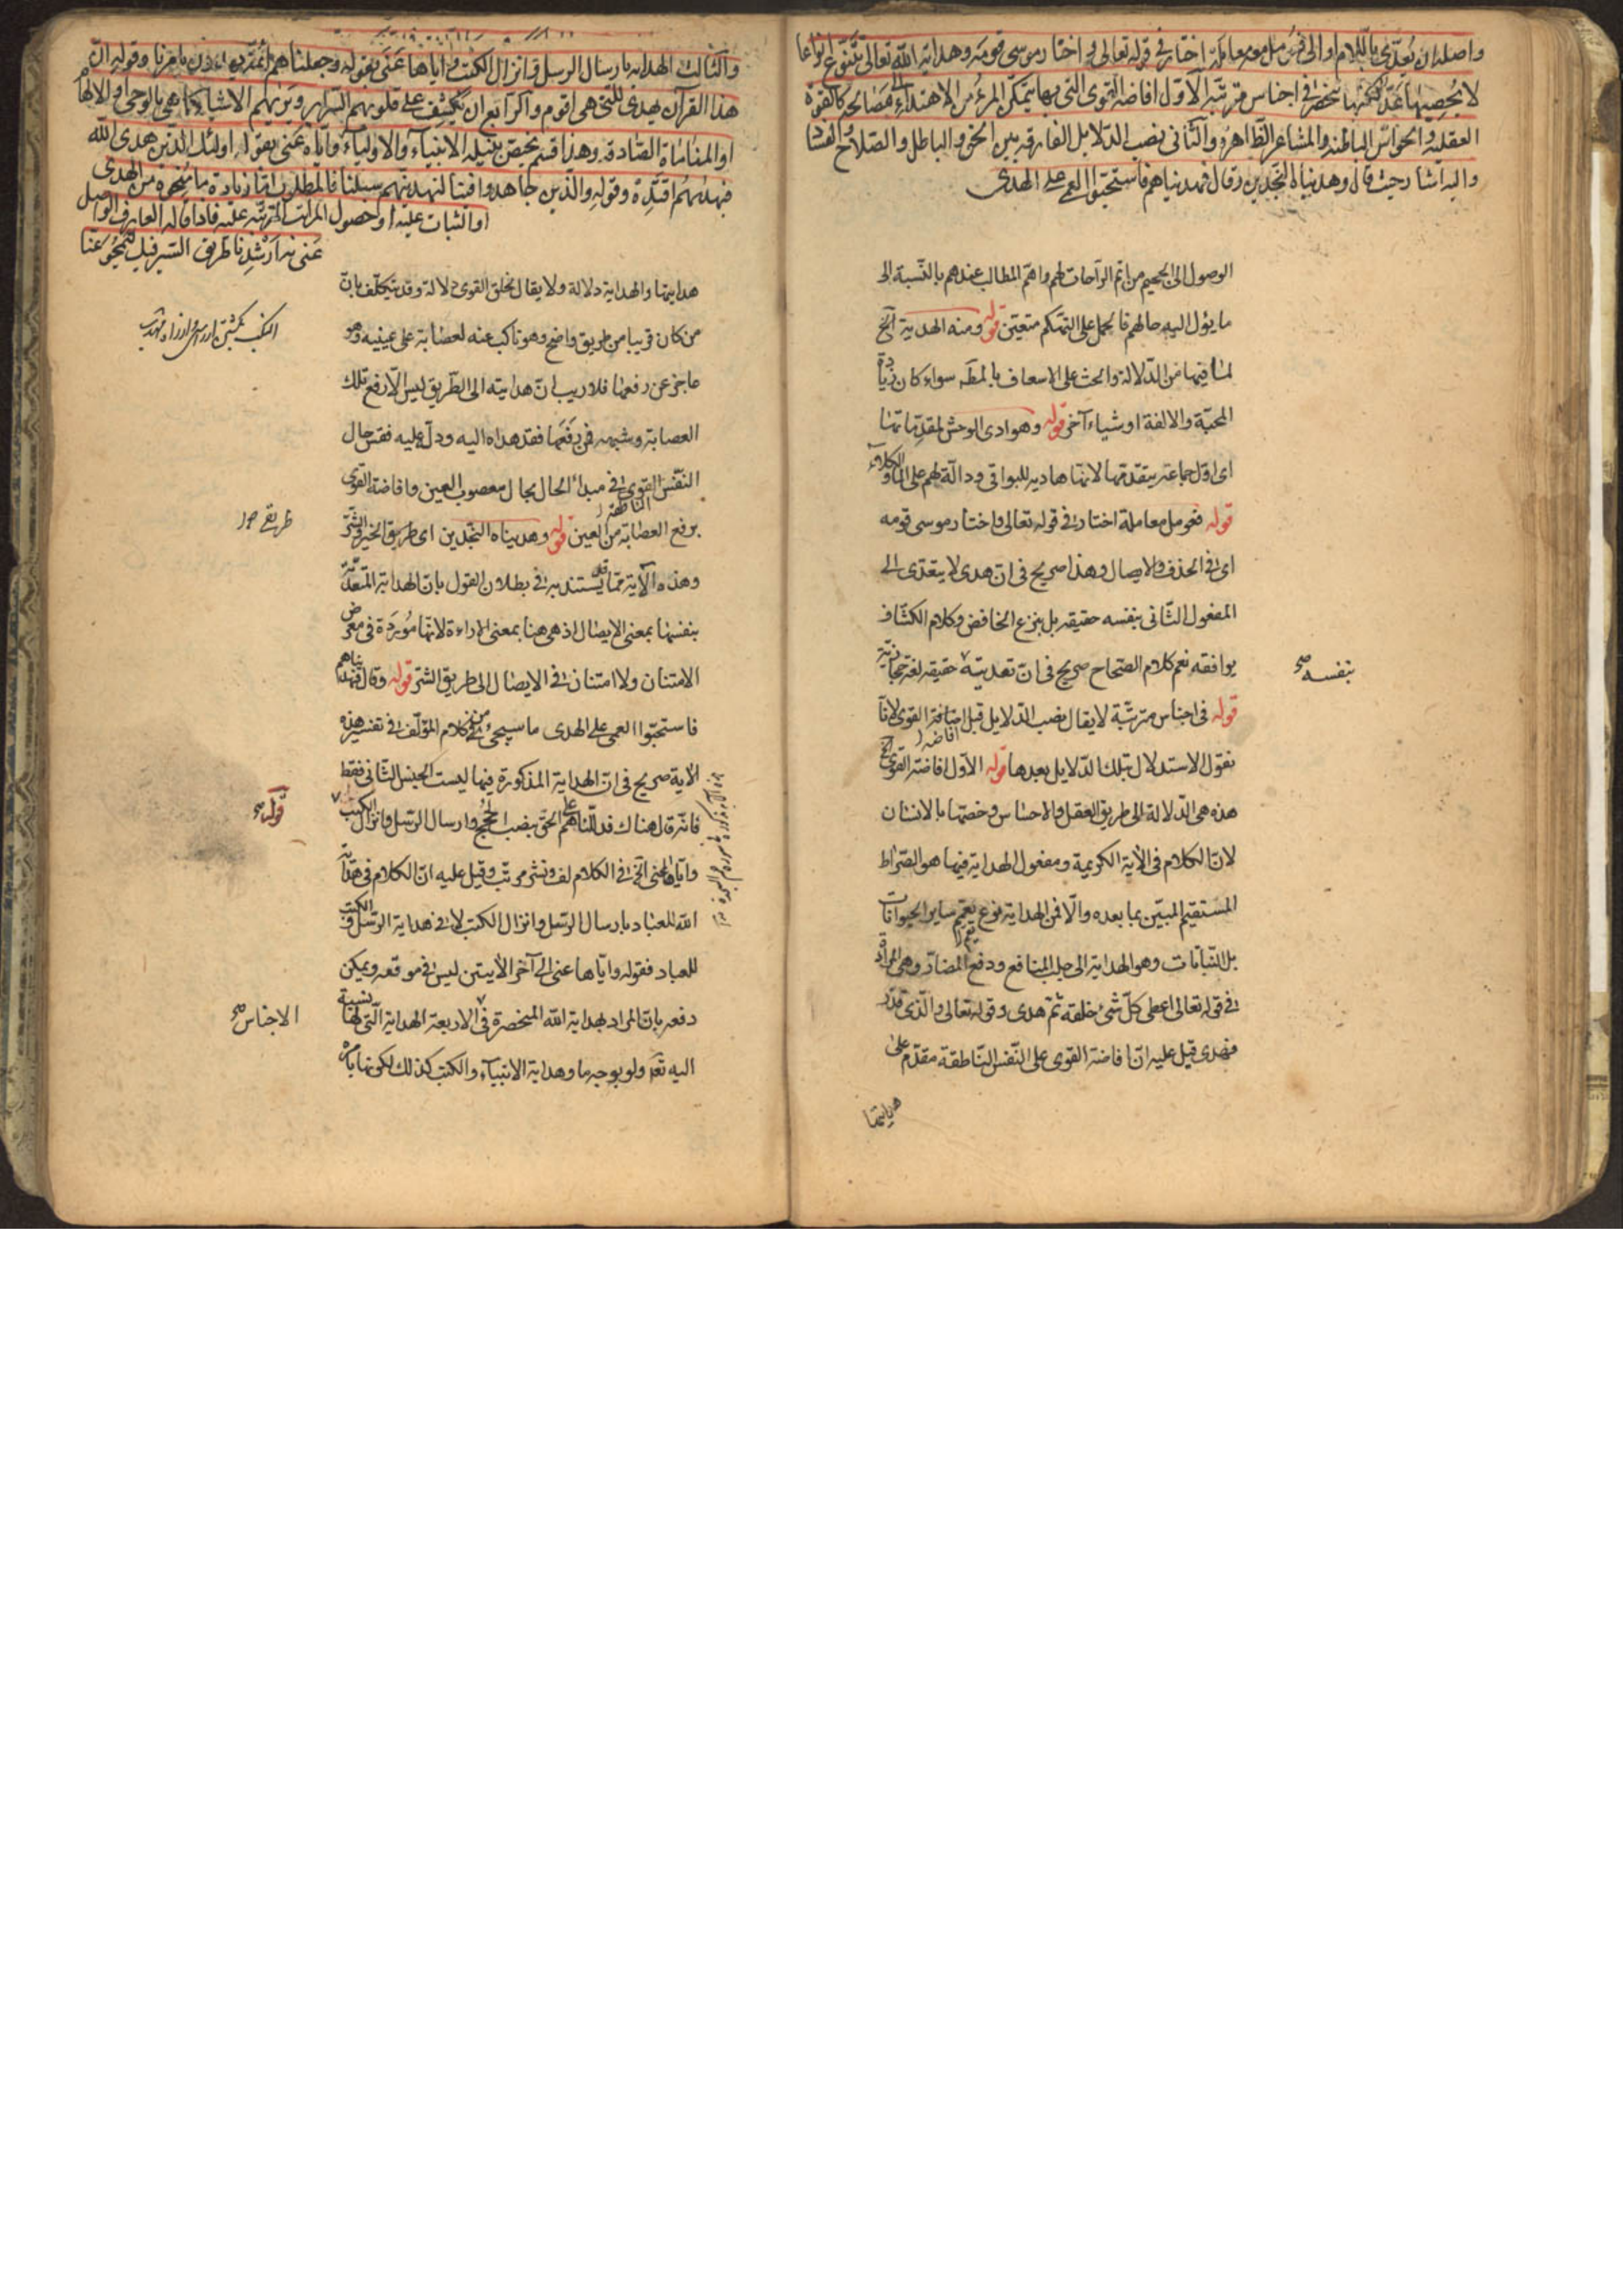 واصله ان يعدى باللام او الى فعومل معاملة اختار في قوله تعالى واختار موسى قومه وهداية الله تعالى تتنوع انواعا
لا يحصيها عد لكنها تنحصر في اجناس مترتبة الاول افاضة القوى التي بها يتمكن المرء من الاهتداء الى مصالحه كالقوة
العقلية والحواس الباطنة والمشاعر الظاهرة والثاني نصب الدلايل الفارقة بين الحق والباطل والصلاح والفساد
واليه اشار حيث قال وهديناه النجدين وقال فهديناهم فاستحبوا العمى على الهدى
الوصول الى الجحيم من اتم الراحات لهم واهم المطالب عندهم بالنسبة الى
ما يؤل اليه حالهم فالحمل على التهكم متعين قوله ومنه الهدية الخ
لما فيها من الدلالة والحث على الاسعاف بالمطلب سواء كان زيادة
المحبة والالفة او شياء آخر قوله وهوادى الوحش لمقدماتها
اى اول جماعة يتقدمها لانها هادية للبواقى ودالة لهم على الماء والكلاء
قوله فعومل معاملة اختار في قوله تعالى واختار موسى قومه
اى في الحذف والايصال وهذا صريح في ان هدى لا يتعدى الى
المفعول الثانى بنفسه حقيقه بل بنزع الخافض وكلام الكشاف
يوافقه نعم كلام الصحاح صريح في ان تعديته حقيقه لغة حجازية
بنفسه صح
قوله في اجناس مترتبة لا يقال نصب الدلايل قبل افاضة القوى لانا
نقول الاستدلال بتلك الدلايل بعدها قوله الاول افاضة القوى الخ
هذه هى الدلالة الى طريق العقل والاحساس وخصها بالانسان
لان الكلام في الاية الكريمة ومفعول الهداية فيها هو الصراط
المستقيم المبين بما بعده والا فمن الهداية نوع يعم ساير الحيوانات
بل النباتات وهو الهداية الى جلب المنافع ودفع المضار وهى المراد
في قوله تعالى اعطى كل شئ خلقه ثم هدى وقوله تعالى والذى قدر
فهدى قيل عليه ان افاضة القوى على النفس الناطقة مقدم على
هدايتها
والثالث الهداية بارسال الرسل وانزال الكتب واياها عنى بقوله وجعلناهم ائمة يهدون بامرنا وقوله ان
هذا القرآن يهدى للتى هى اقوم والرابع ان يكشف على قلوبهم السراير ويريهم الاشياء كما هى بالوحى او الالهام
او المنامات الصادقة وهذا قسم يختص بنيله الانبياء والاولياء واياه عنى بقوله اولئك الذين هدى الله
فبهديهم اقتده وقوله والذين جاهدوا فينا لنهدينهم سبلنا فالمطلوب اما زيادة ما منحوه من الهدى
او الثبات عليه او حصول المراتب المترتبة عليه فاذا قاله العارف الواصل
عنى به ارشدنا طريق السير فيك لتمحو عنا
هدايتها والهداية دلالة ولا يقال لخلق القوى دلالة وقد يتكلف بان
من كان قريبا من طريق واضح وهو ناكب عنه لعصابة على عينيه وهو
عاجز عن رفعها فلا ريب ان هدايته الى الطريق ليس الا رفع تلك
العصابة وشبهه فمن رفعها فقد هداه اليه ودل عليه فقس حال
النفس القوى في مبداء الحال بحال معصوب العين وافاضة القوى
برفع العصابة من العين قوله وهديناه النجدين اى طريق الخير والشر
وهذه الآية مما قد يستند به في بطلان القول بان الهداية المتعدية
بنفسها بمعنى الايصال اذ هى هنا بمعنى الاراءة لانها موردة في معرض
الامتنان ولا امتنان في الايصال الى طريق الشر قوله وقال فهديناهم
فاستحبوا العمى على الهدى ما سيجئ من كلام المؤلف في تفسير هذه
الاية صريح في ان الهداية المذكورة فيها ليست الجنس الثانى فقط
فانه قال هناك فدللناهم على الحق بنصب الحجج وارسال الرسل وانزال الكتب
قوله صح
واياها عنى الخ في الكلام لف ونشر مرتب وقيل عليه ان الكلام في هداية
الله للعباد بارسال الرسل وانزال الكتب لا في هداية الرسل والكتب
للعباد فقوله واياها عنى الى آخر الايتين ليس في موقعه ويمكن
دفعه بان المراد بهداية الله المنحصرة في الاربعة الهداية التى لها نسبة
الاجناس صح
اليه تعالى ولو بوجه ما وهداية الانبياء والكتب كذلك لكونها بامره